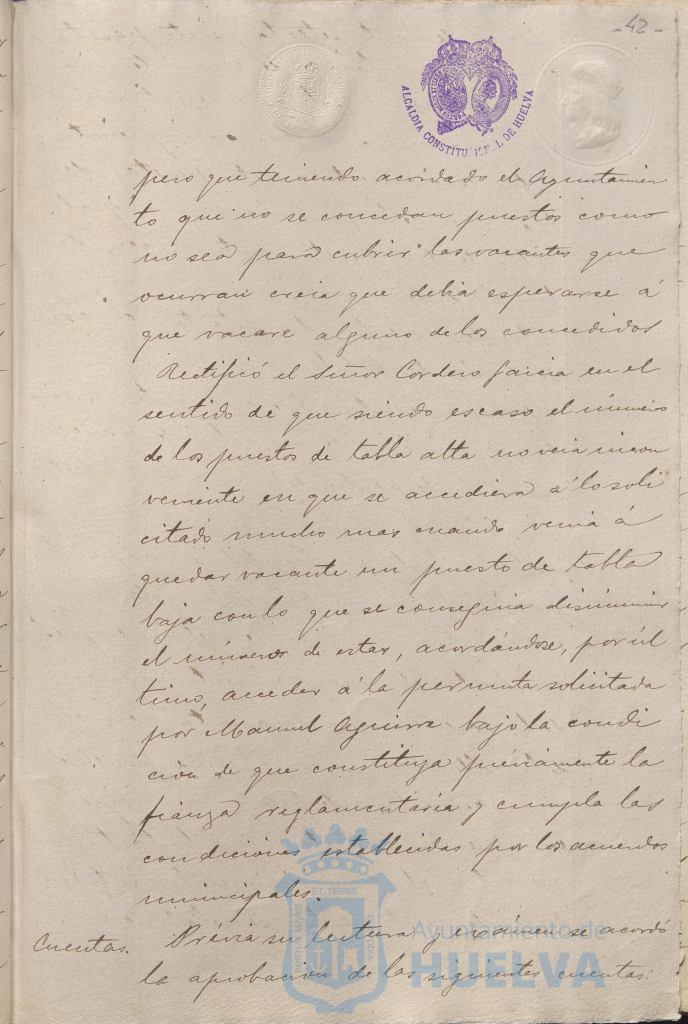 -42-
ALCALDIA CONSTITU L DE HUELVA
pero que teniendo acordado el Ayuntamien
to que no se concedan puestos como
no sea para cubrir las vacantes que
ocurran creia que debia esperarse á
que vacare alguno de los concedidos
Rectificó el Señor Cordero Garcia en el
sentido de que siendo escaso el número
de los puestos de tabla alta no veia incon
veniente en que se accediera á lo soli
citado mucho mas cuando venia á
quedar vacante un puesto de tabla
baja con lo que se conseguia disminuir
el número de estas, acordándose, por úl
timo, acceder á la permuta solicitada
por Manuel Aguirre bajo la condi
ción de que constituya préviamente la
fianza reglamentaria y cumpla las
condiciónes establecidas por los acuerdos
municipales.
Cuentas. Prévia su lectura y exámen se acordó
la aprobación de las siguientes cuentas:
Ayuntamiento de
HUELVA